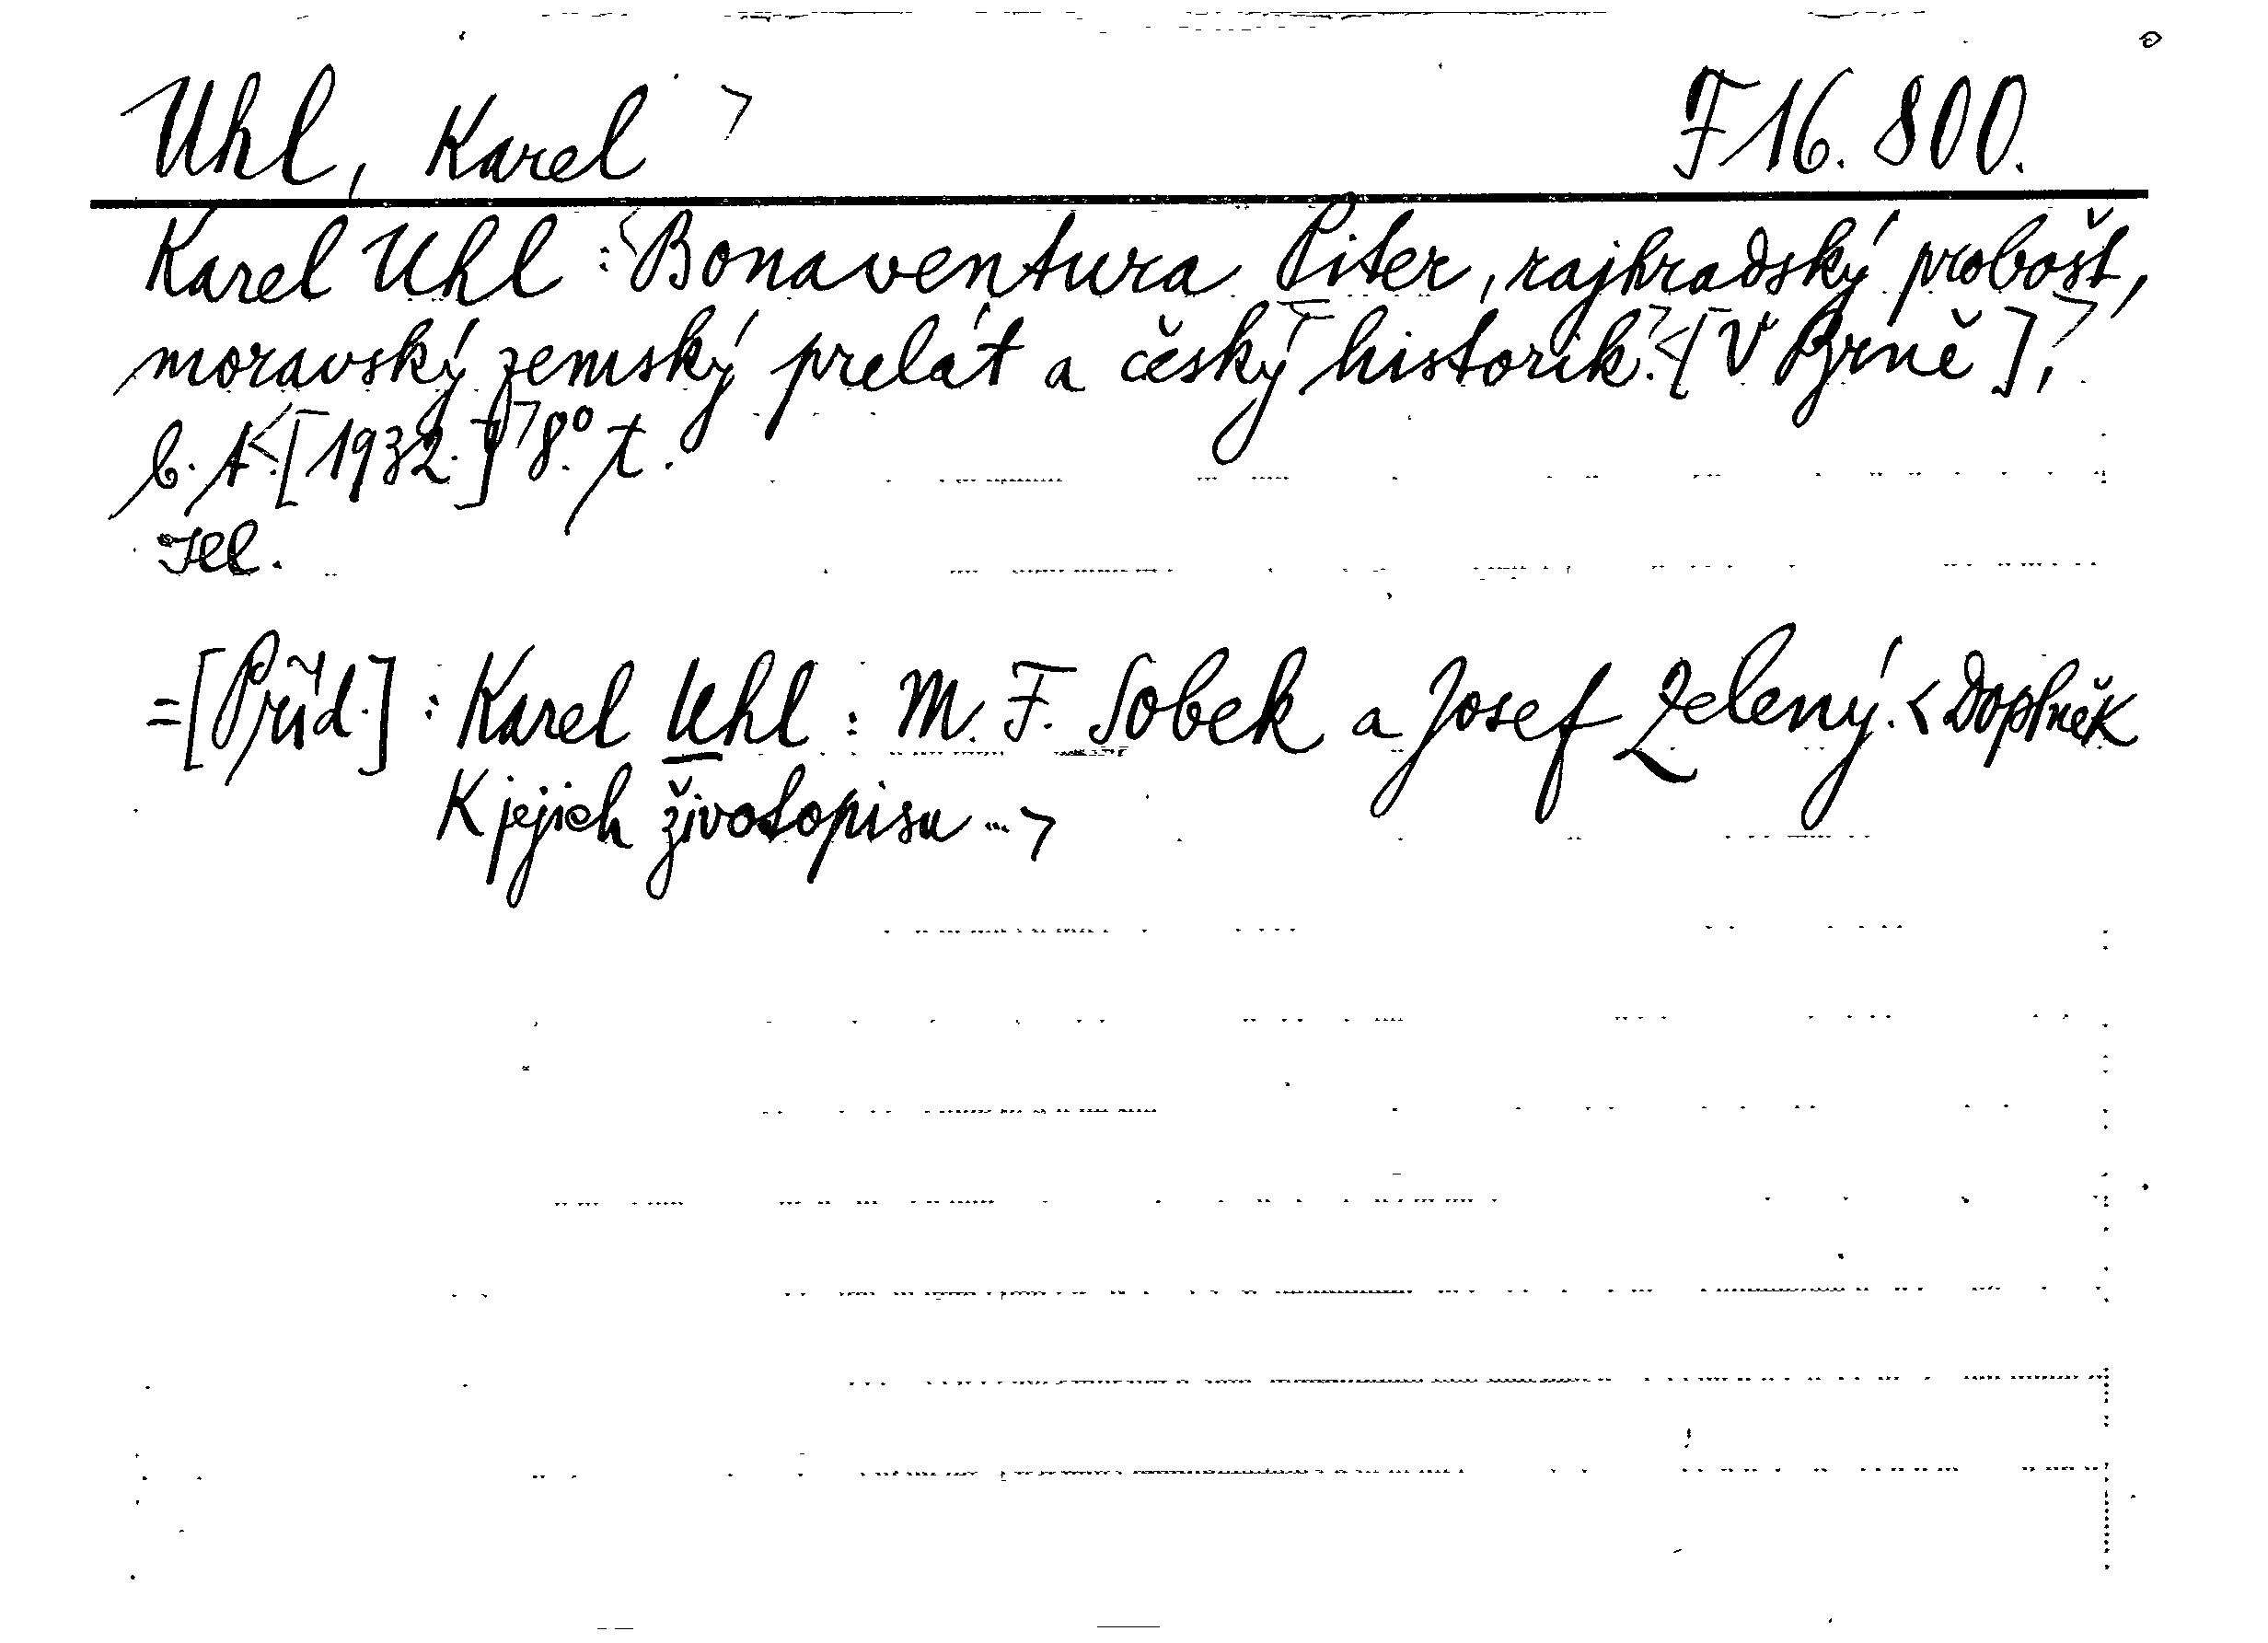 Uhl, Karel > F 16.800.
Karel Uhl : <Bonaventura Piter, rajhradský probošt,
moravský zemský prelát a český historik.> <[V Brně],>
b. t. <[1932.]> 8°. t.
= [Příd.] : Karel Uhl : M. F. Sobek a Josef Zelený. < Doplněk
K jejich životopisu ... >